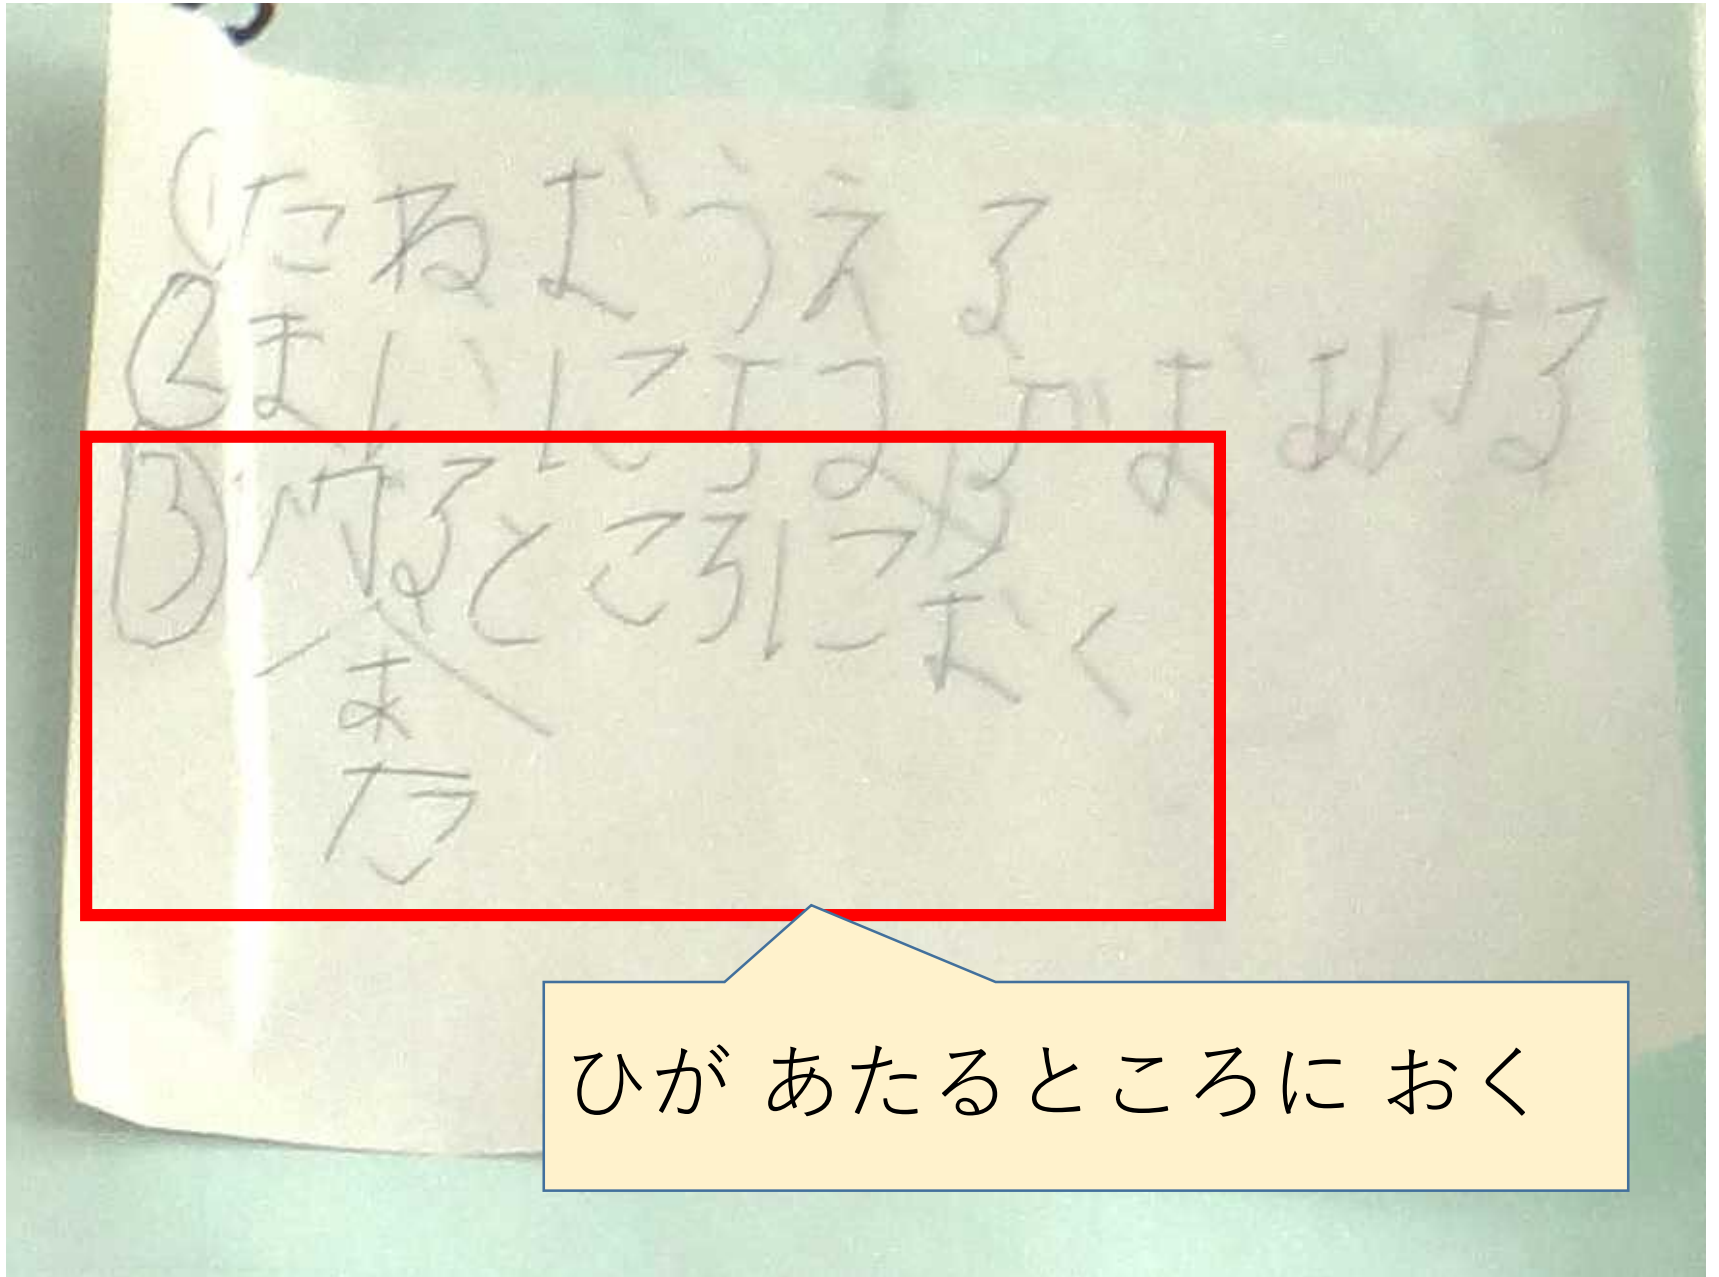 ①たねおうえる
②まいにちみずおあげる
③るところにおく
あ
た
ひが あたるところに おく